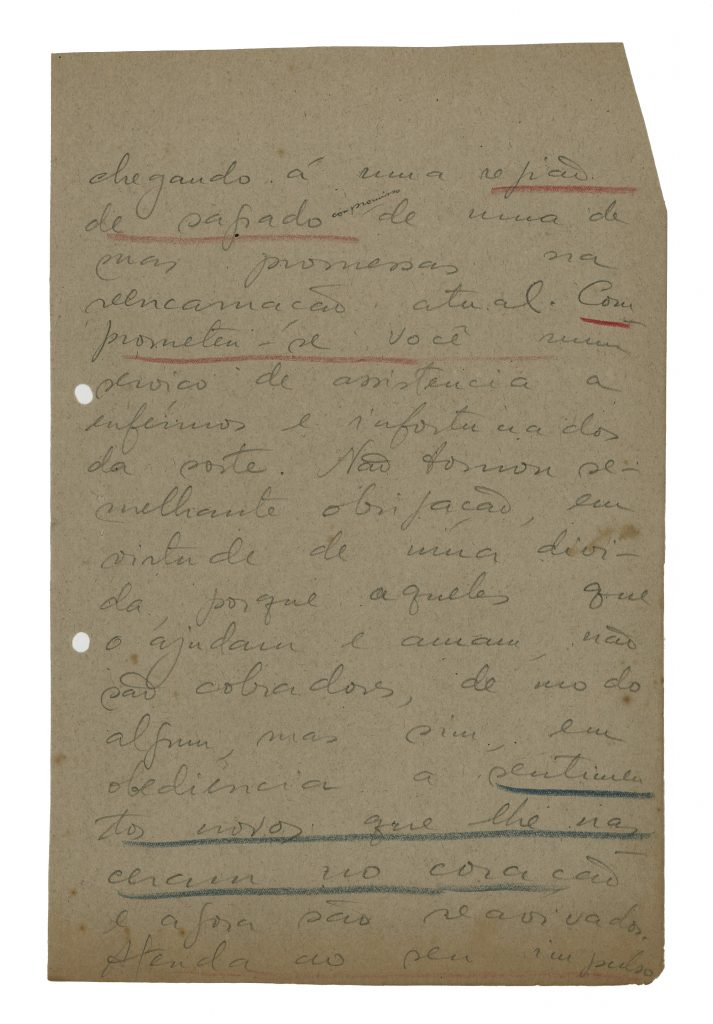 chegando á uma região
de sagrado compromisso de uma de
suas promessas na
reencarnação atual. Com
prometeu-se você num
serviço de assistencia a
enfermos e infortunados
da sorte. Não tomou se-
melhante obrigação, em
virtude de uma divi-
da, porque aqueles que
o ajudam e amam, não
são cobradores, de modo
algum, mas sim, em
obediência a sentimen
tos novos que lhe nas
ceram no coração
e agora são reavivados.
Atenda ao seu impulso